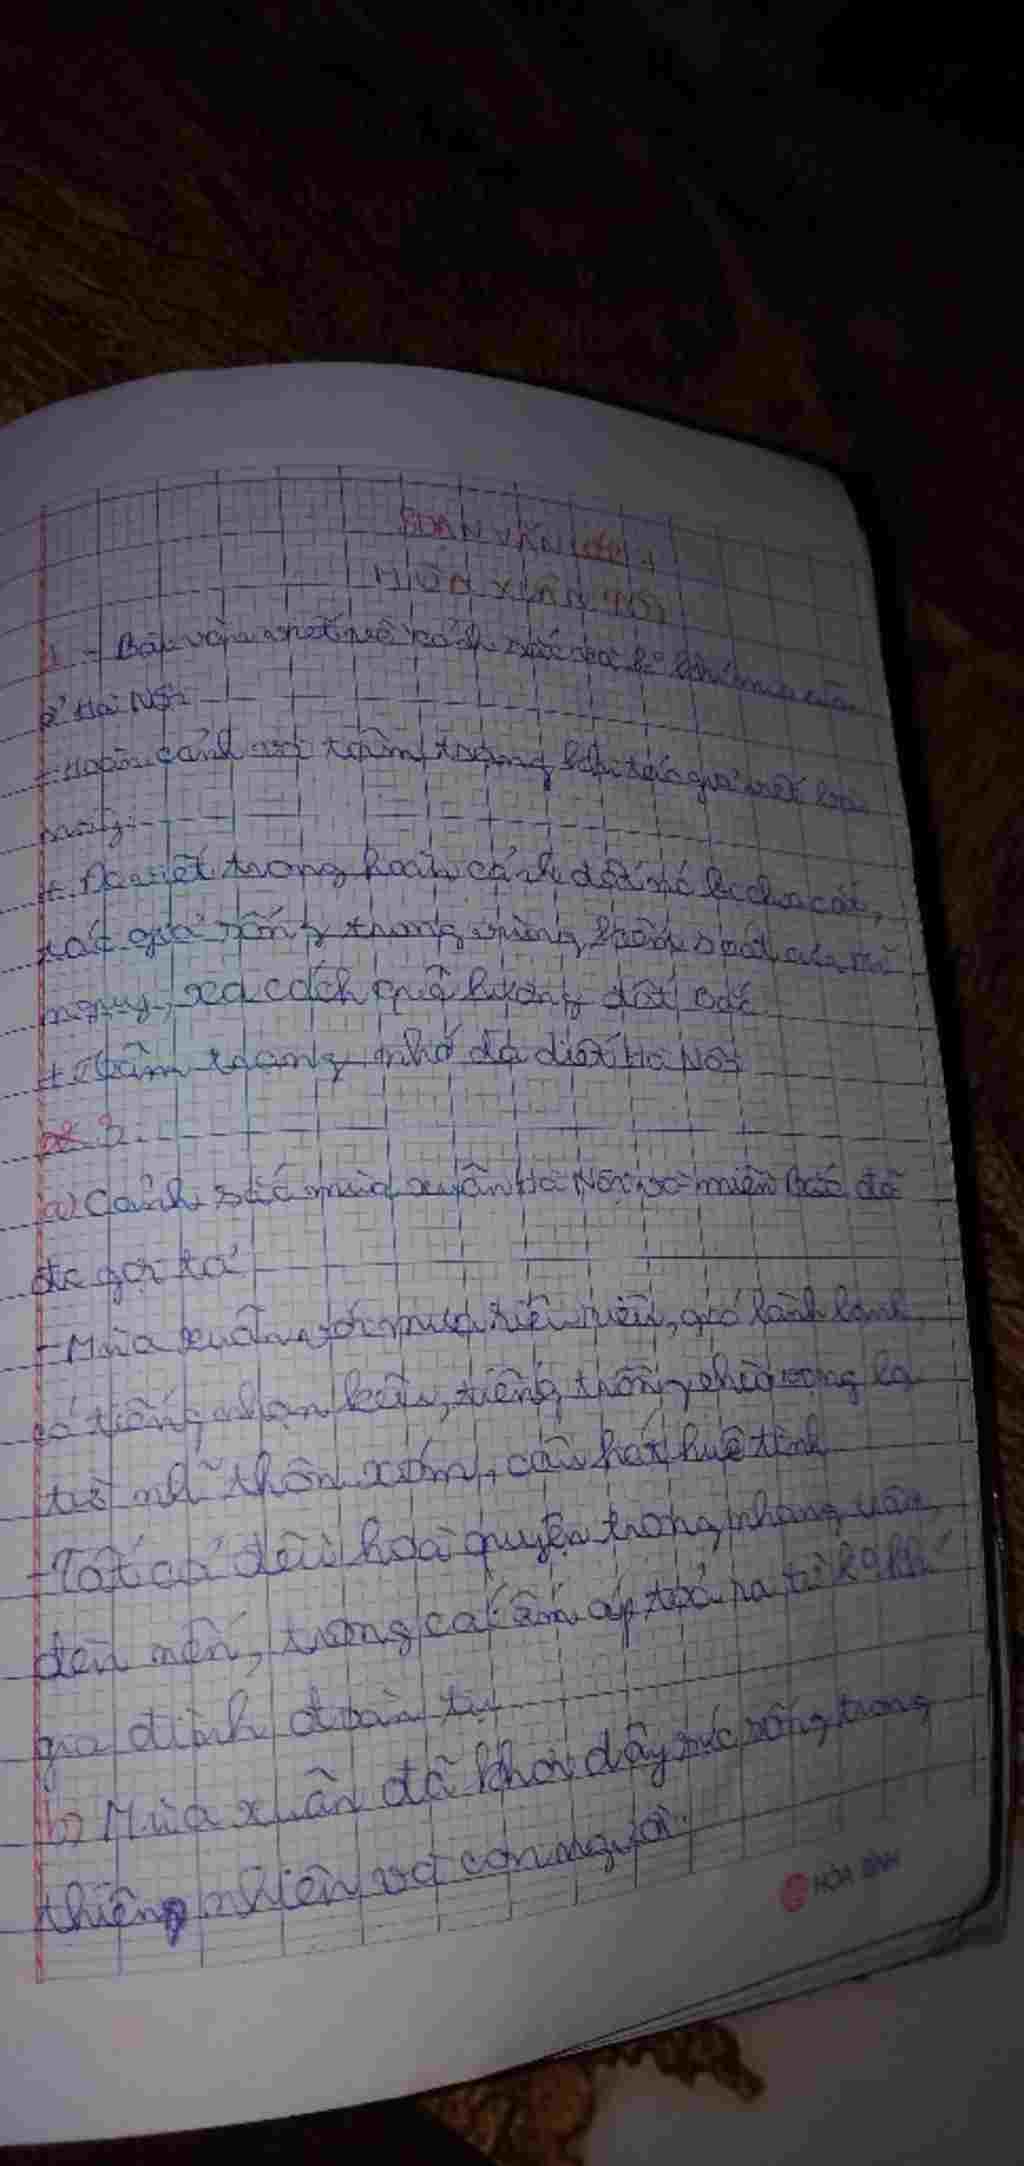 SOẠN VĂN
MÙA XUÂN
1 - Bài văn viết về cảnh sắc và k° khí mùa xuân
ở Hà Nội
- Hoàn cảnh và tâm trạng khi tác giả viết bài
này:
+ Đc viết trong hoàn cảnh đất nc bị chia cắt,
tác giả sống trong vùng kiểm soát của Mĩ
nguỵ, xa cách quê hương đất Bắc
+ Tâm trạng nhớ da diết Hà Nội
a) Cảnh sắc mùa xuân Hà Nội và miền Bắc đã
đc gợi tả
- Mùa xuân có mưa riêu riêu, gió lành lạnh
có tiếng nhạn kêu, tiếng trống chèo vọng lại
từ nh~ thôn xóm, câu hát huê tình
- Tất cả đều hoà quyện trong nhang trầm,
đèn nến, trong cái ấm áp toả ra từ k° khí
gia đình đoàn tụ
b) Mùa xuân đã khơi dậy sức sống trong
thiên nhiên và con người.
HÒA BÌNH